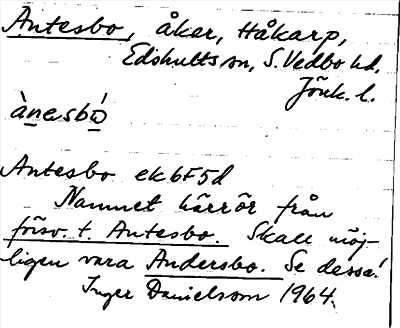 Antesbo, åker, Håkarp,
Edshults sn, S. Vedbo hd,
Jönk. l.
ànesbó̲
Antesbo ek 6F5d
Namnet härrör från
försv. t. Antesbo. Skall möj-
ligen vara Andersbo. Se dessa!
Inger Danielsson 1964.